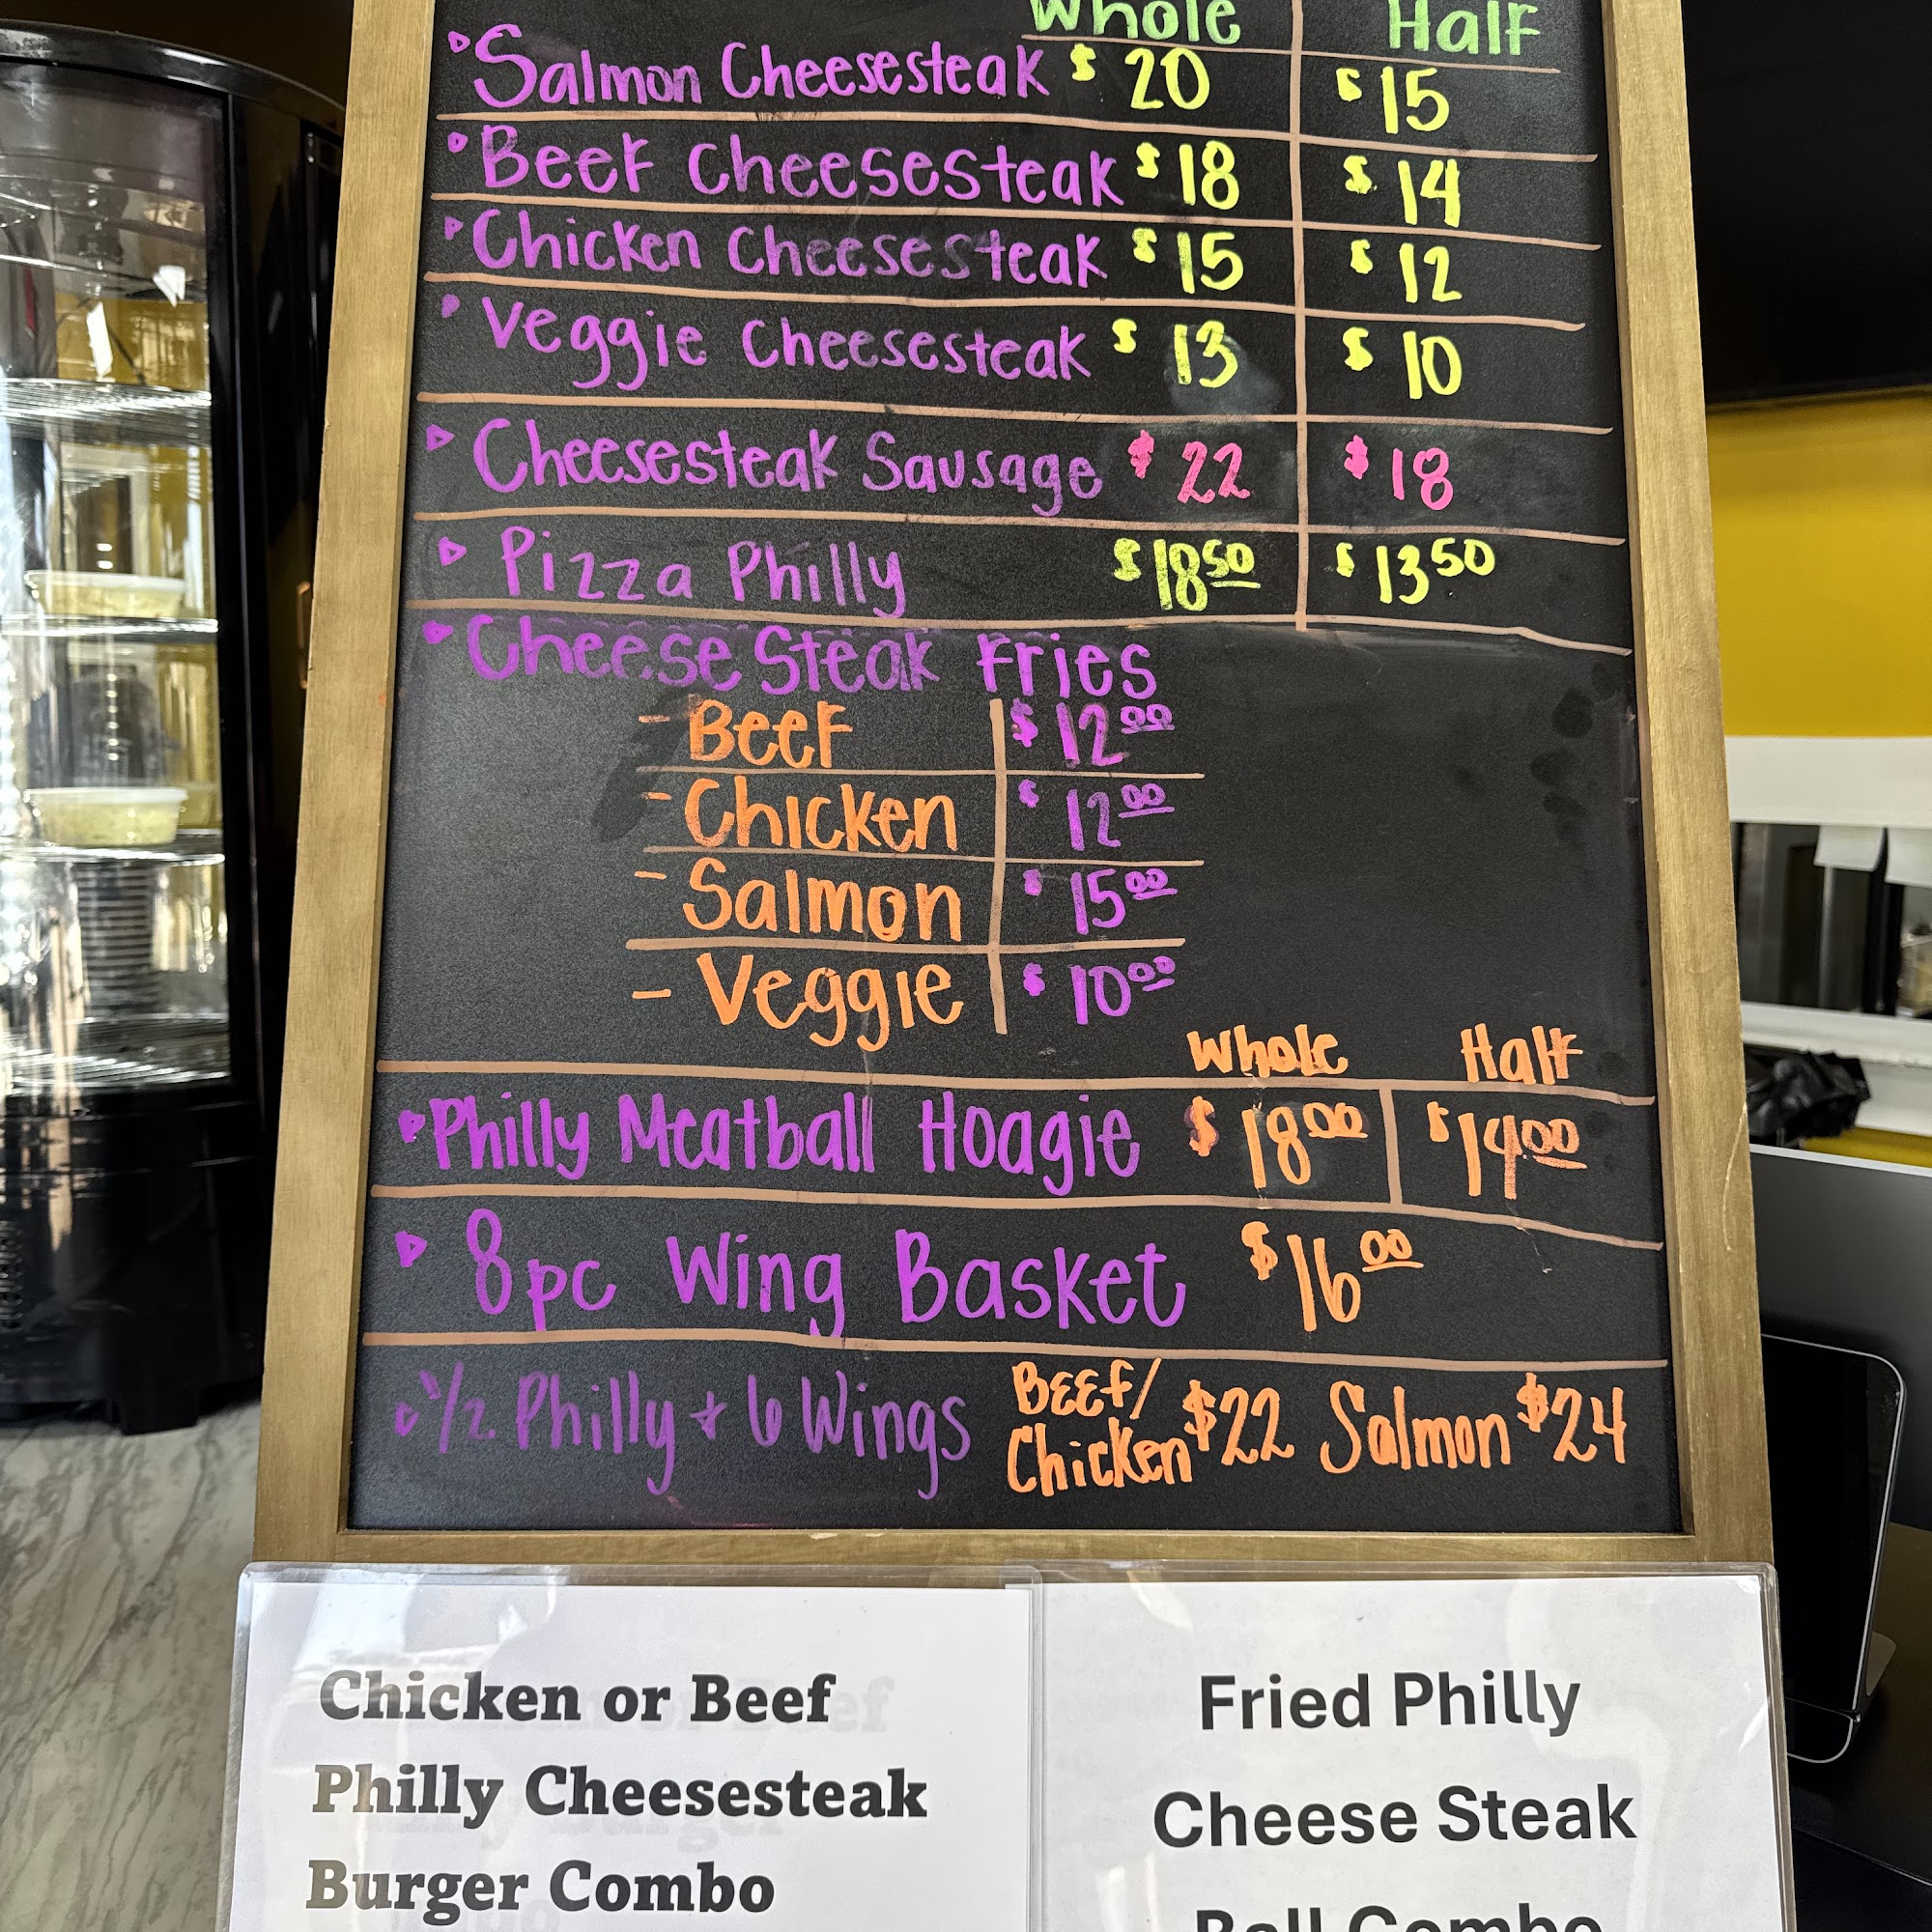 Whole Half
Salmon Cheesesteak $ 20 $ 15
Beef Cheesesteak $ 18 $ 14
Chicken Cheesesteak $ 15 $ 12
Veggie Cheesesteak $ 13 $ 10
Cheesesteak Sausage $ 22 $ 18
Pizza Philly $18.50 $13.50
Cheese Steak Fries
- Beef $12.00
- Chicken $12.00
- Salmon $15.00
- Veggie $10.00
Whole Half
Philly Meatball Hoagie $18.00 $14.00
8pc Wing Basket $16.00
1/2 Philly + 6 Wings Beef/ Chicken $22 Salmon $24
Chicken or Beef
Philly Cheesesteak
Burger Combo
Fried Philly
Cheese Steak
Ball Combo